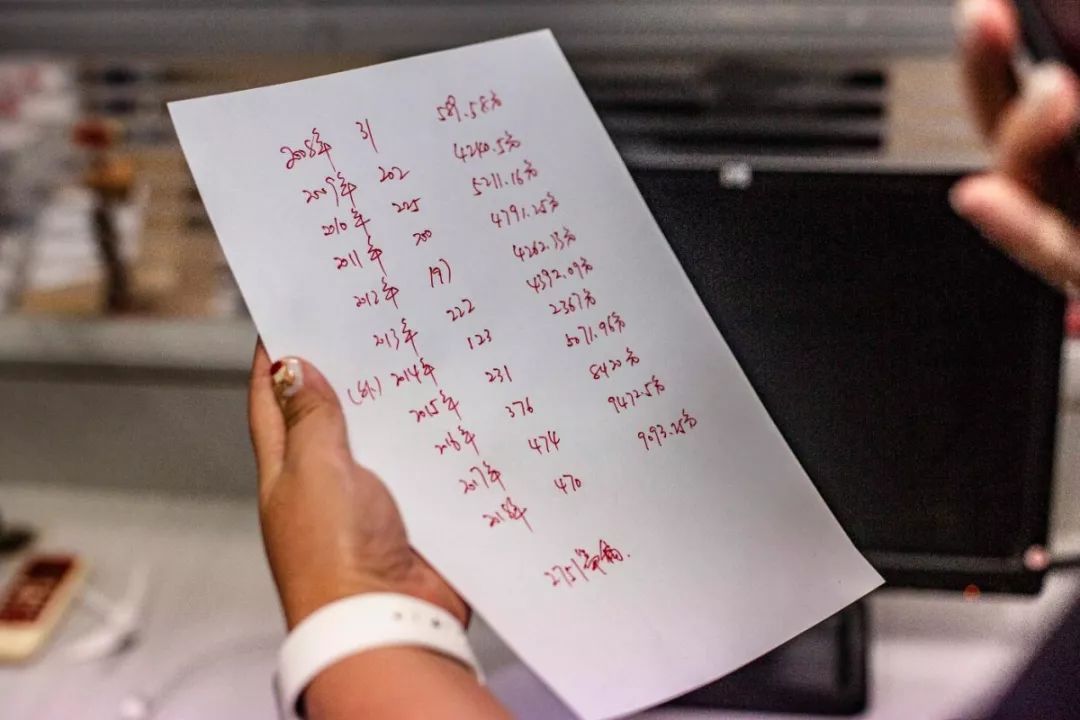 2008年 31 589.58万
2009年 202 4240.5万
2010年 225 5211.16万
2011年 200 4791.25万
2012年 197 4262.33万
2013年 222 4392.09万
2014年 123 2367万
2015年 231 5071.96万
2016年 376 8420万
2017年 474 9472.5万
2018年 470 9093.25万
2751